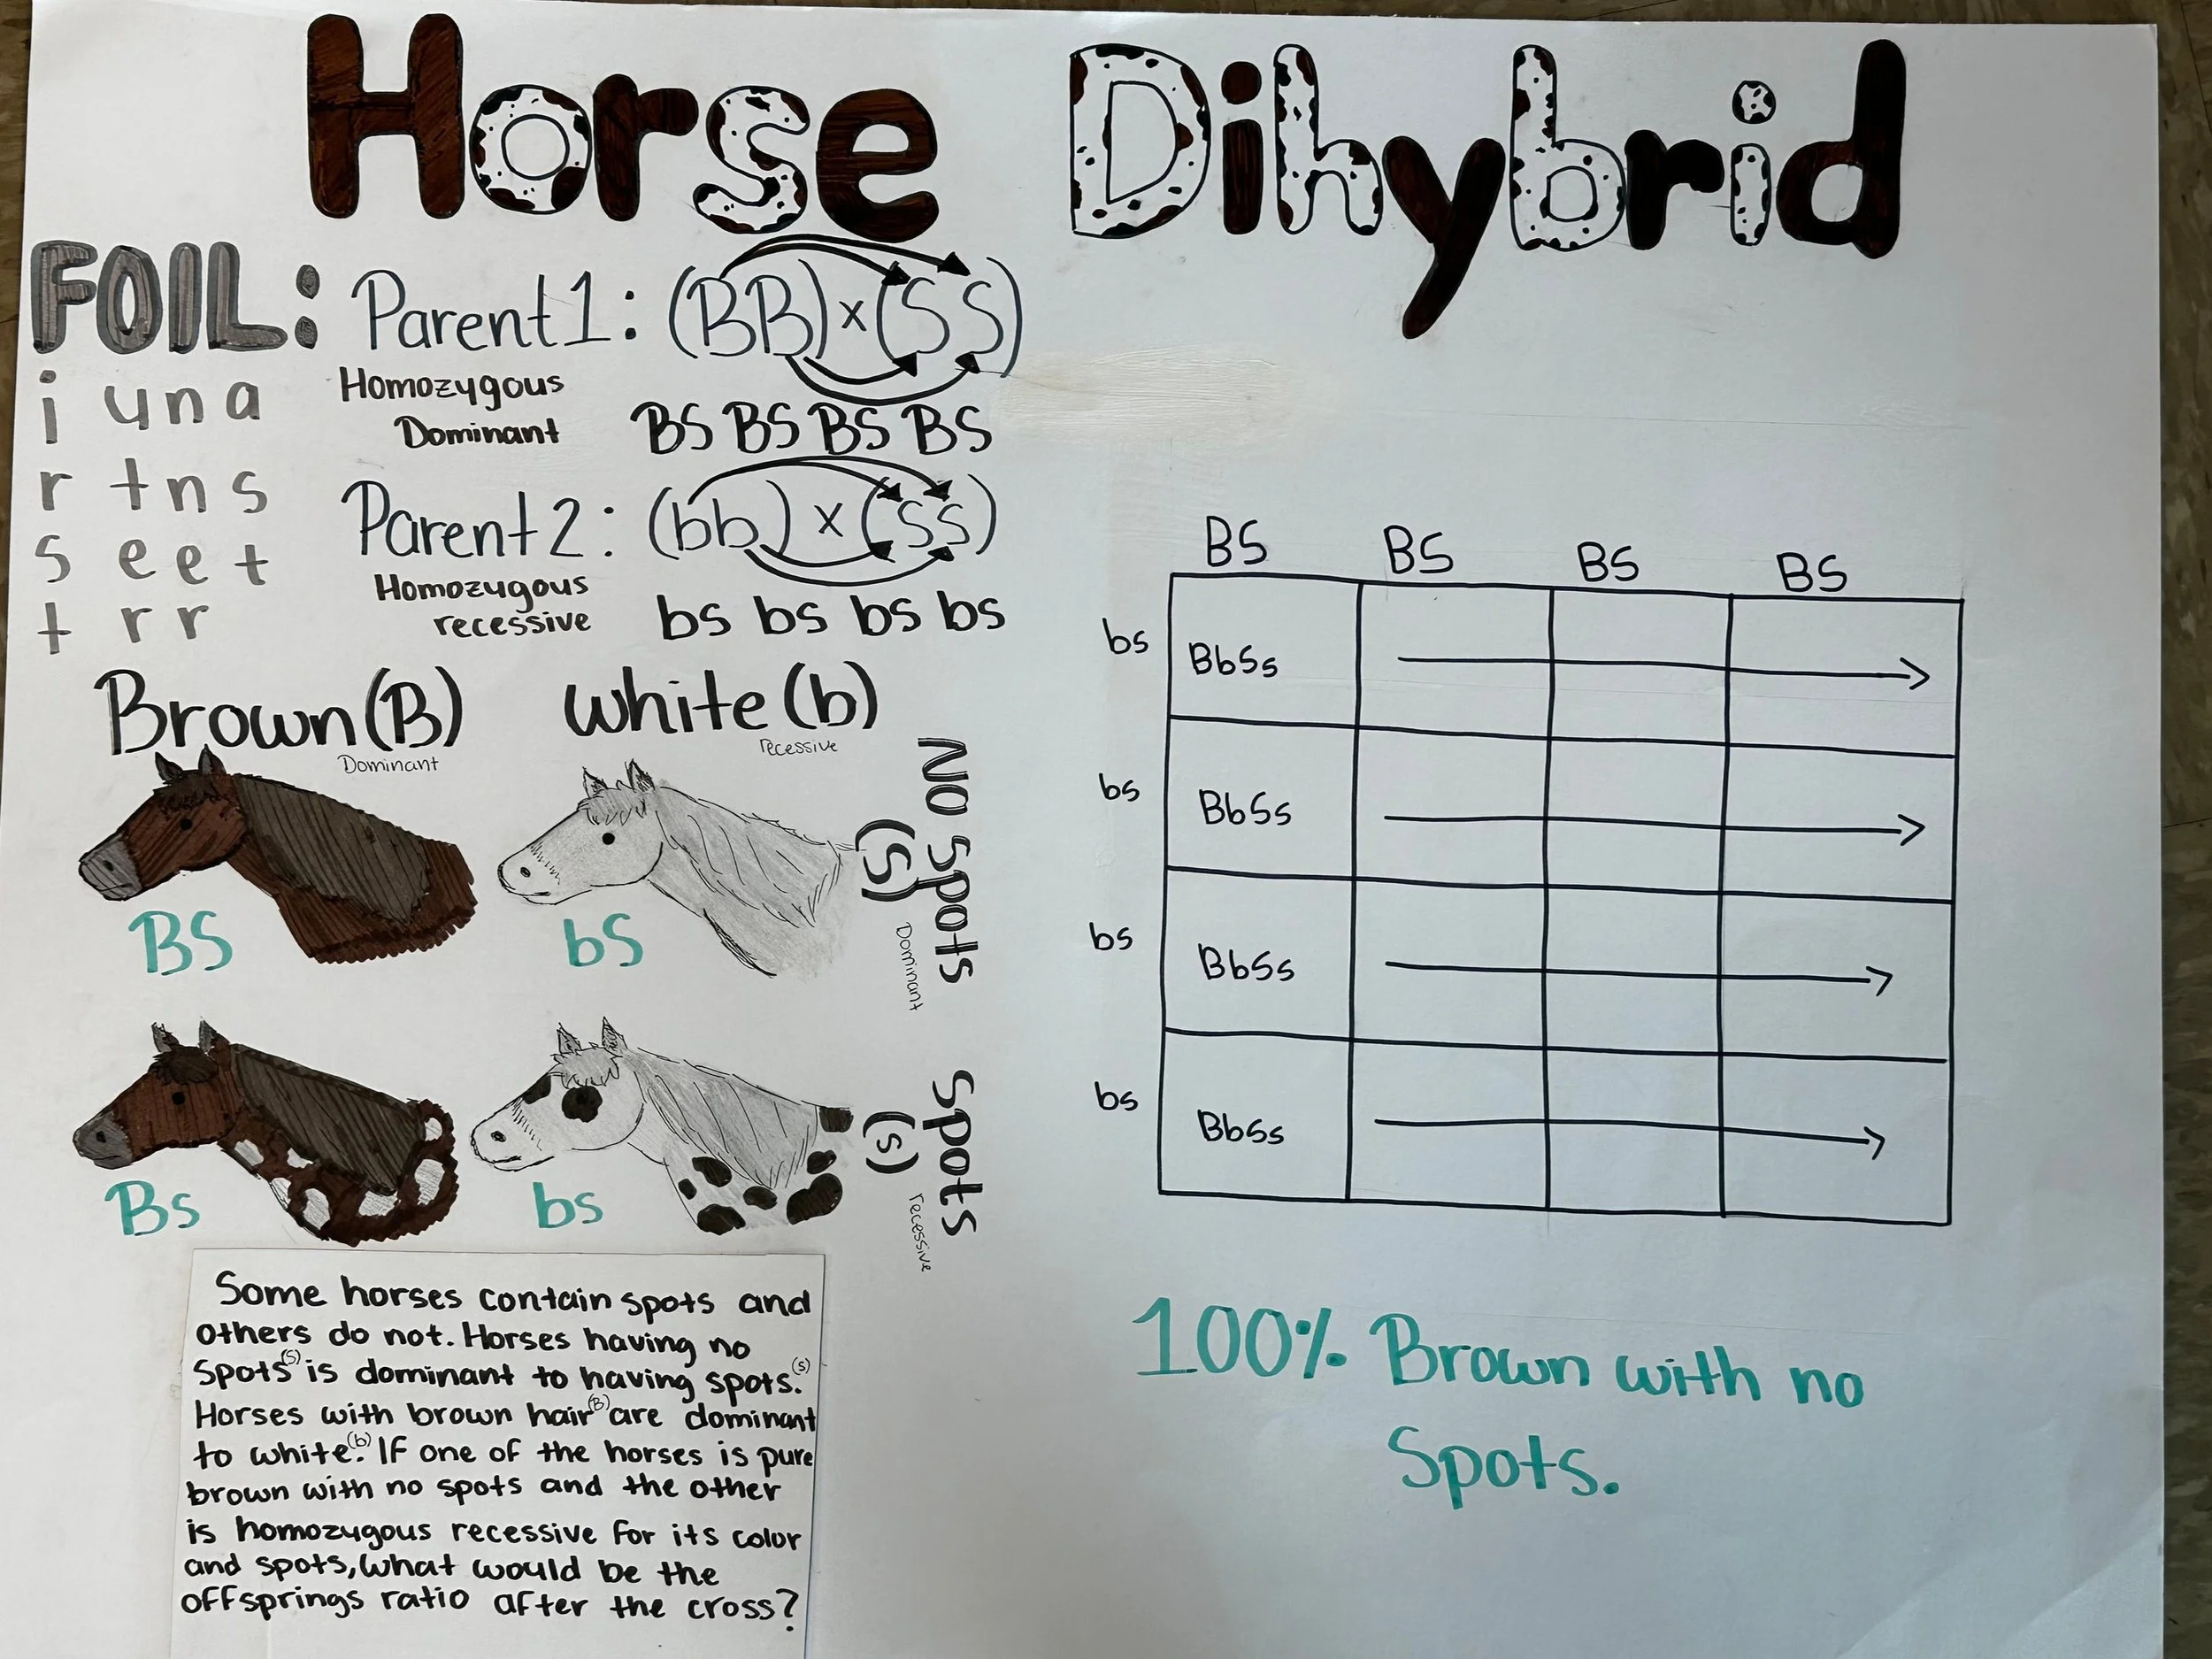 Horse Dihybrid
FOIL:
irst
uter
nner
ast
Parent 1: (BB) x (SS)
Homozygous
Dominant
BS BS BS BS
Parent 2: (bb) x (ss)
Homozygous
recessive
bs bs bs bs
Brown (B)
Dominant
white (b)
recessive
No Spots
(S)
Dominant
BS
bS
Spots
(s)
recessive
Bs
bs
Some horses contain spots and
others do not. Horses having no
Spots (S) is dominant to having spots. (s)
Horses with brown hair (B) are dominant
to white. (b) If one of the horses is pure
brown with no spots and the other
is homozygous recessive for its color
and spots, what would be the
offsprings ratio after the cross?
BS BS BS BS
bs BbSs
bs BbSs
bs BbSs
bs BbSs
100% Brown with no
Spots.